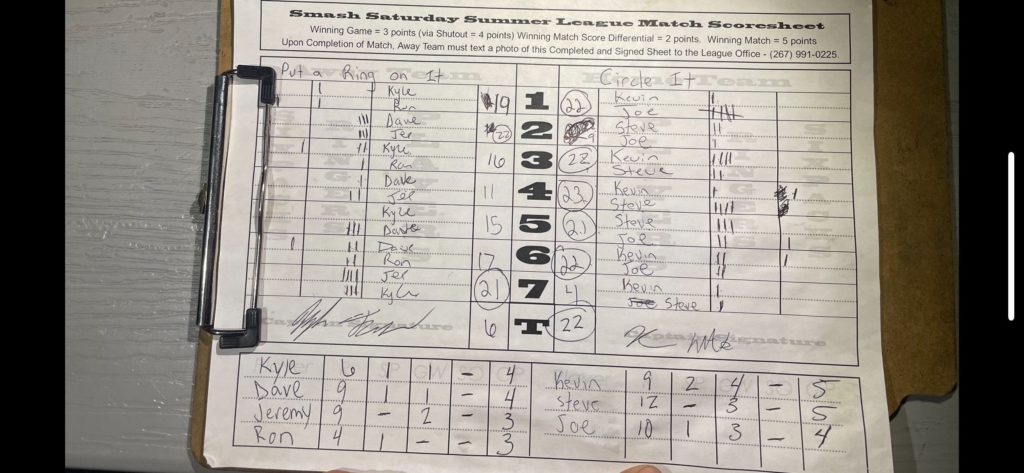 Smash Saturday Summer League Match Scoresheet
Winning Game = 3 points (via Shutout = 4 points) Winning Match Score Differential = 2 points. Winning Match = 5 points
Upon Completion of Match, Away Team must text a photo of this Completed and Signed Sheet to the League Office - (267) 991-0225.
Put a Ring on It Circle It
Kyle 19 1 22 Kevin
Ron Joe
Dave 22 2 9 Steve
Jer Joe
Kyle 16 3 22 Kevin
Ron Steve
Dave 11 4 23 Kevin
Jer Steve
Kyle 15 5 21 Steve
Dave Joe
Dave 17 6 22 Kevin
Ron Joe
Jer 21 7 4 Kevin
Kyle Joe Steve
6 T 22
Kyle 6 1 1 - 4 Kevin 9 2 4 - 5
Dave 9 1 1 - 4 Steve 12 - 3 - 5
Jeremy 9 - 2 - 3 Joe 10 1 3 - 4
Ron 4 1 - - 3